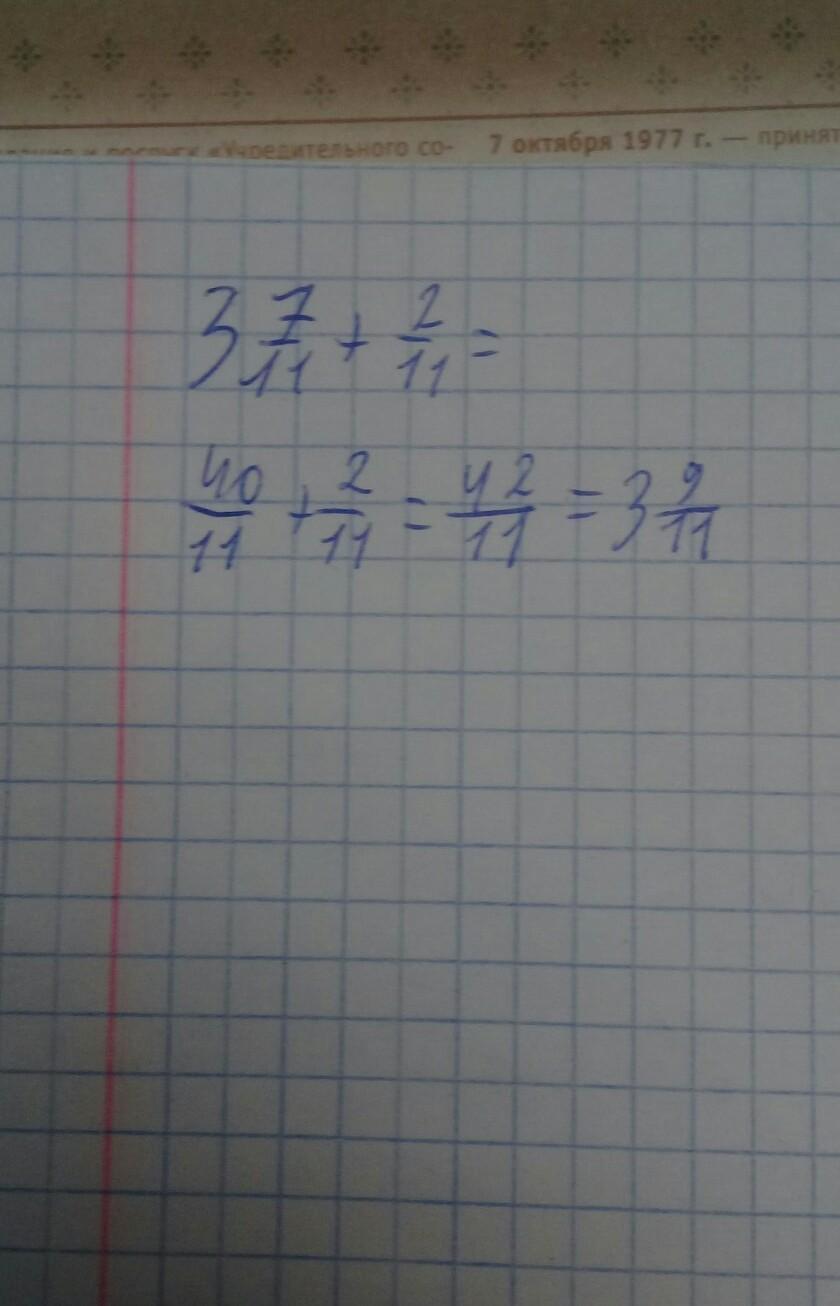 «Учредительного со-
7 октября 1977 г. — принят
3 7/11 + 2/11 =
40/11 + 2/11 = 42/11 = 3 9/11